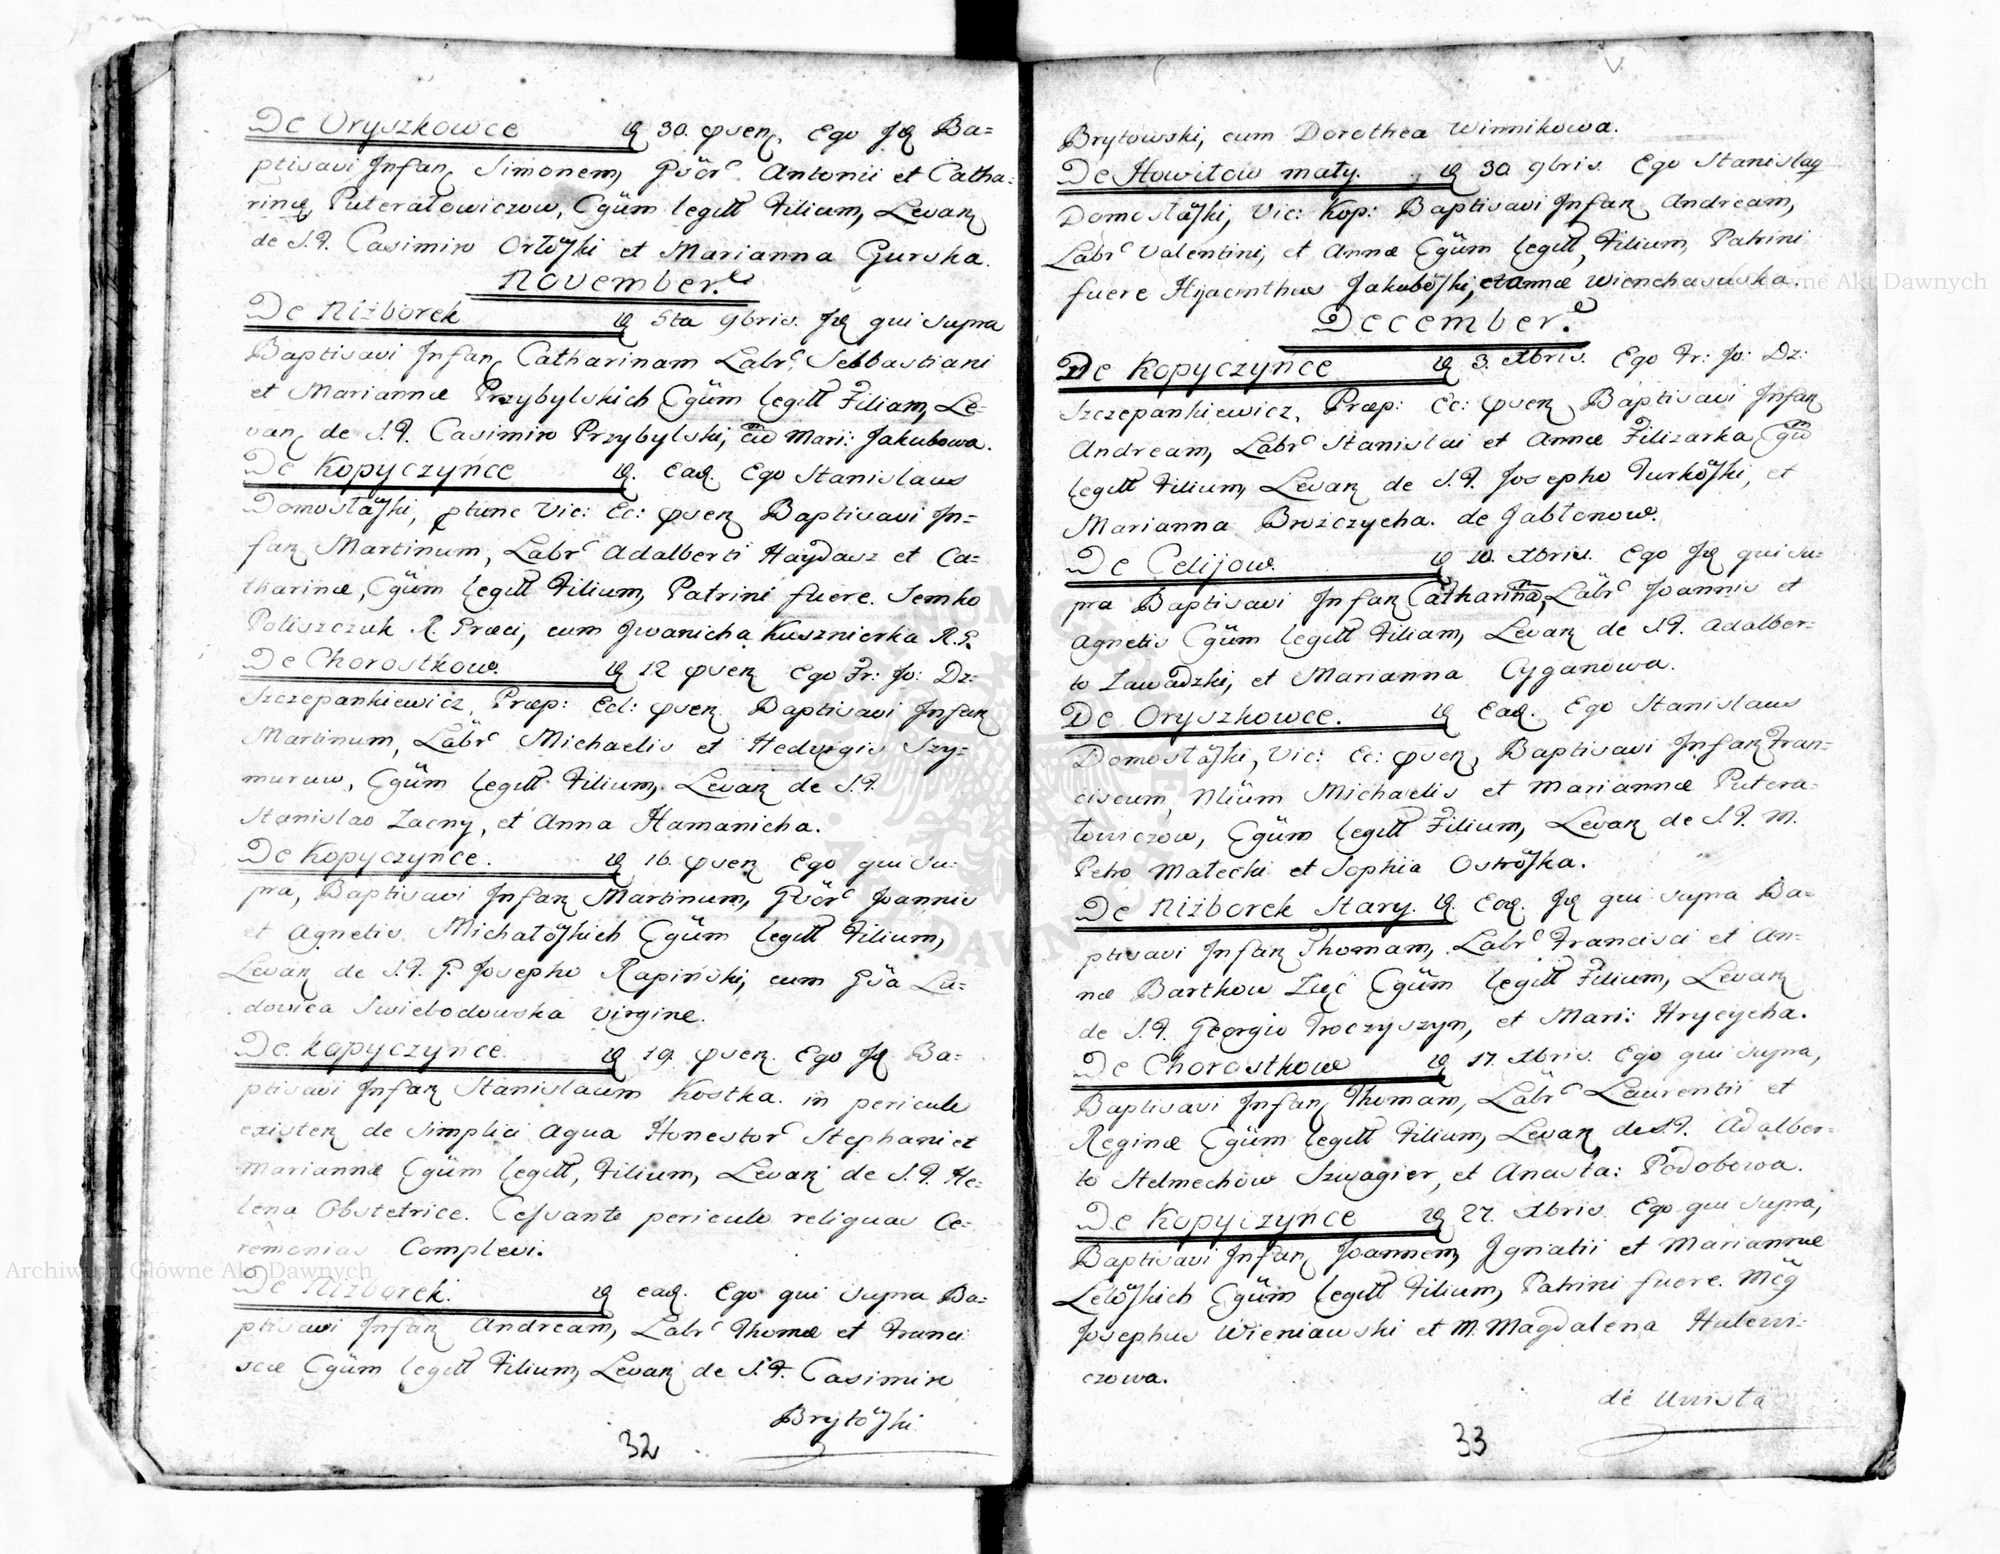 De Oryszkowce d 30. qven. Ego Id Ba=
ptisavi Infan Simonem, Gsör. Antonii et Catha=
rinæ, Puteratowiczow, Cgüm legitt Filium, Levan
de S.F. Casimiro Ortöski et Marianna Gurska.
November.
De Niżborek d 5ta 9bris. Id qui supra
Baptisavi Infan Catharinam Labr. Sebbastiani
et Mariannæ Przybylskich Cgüm legitt Filiam, Le=
van de S.F. Casimiro Przybylski, cū Mari: Jakubowa.
De Kopyczyńce d. ead. Ego Stanislaus
Domostaïski, ptunc Vic: Ec: qven Baptisavi In=
fan Martinum, Labr Adalberti Haydasz et Ca=
tharinæ, Cgüm legitt Filium, Patrini fuere. Semko
Poliszczuk R. Græci, cum Iwanicha Kusznierka R.G.
De Chorostkow. d 12 qven Ego Fr: Jo: Dz:
Szczepankiewicz, Præp: Ecl: qven. Baptisavi Infan
Martinum, Läbr Michaelis et Hedvigis Szy=
muruw, Cgüm legitt Filium, Levan de S.F.
Stanislao Zacny, et Anna Hamanicha.
De Kopyczyńce. d 16. qven Ego qui su=
pra, Baptisavi Infan Martinum, Gsör Joannis
et Agnetis. Michatöskich Cgüm legitt Filium,
Levan de S.F. G. Josepho Rapiński, cum Gsä Lu=
dovica Swiebodowska virgine.
De. Kopyczyńce. d 19. qven. Ego Id Ba=
ptisavi Infan Stanislaum Kostka. in periculo
existen de simplici aqua Honestor Stephani et
Mariannæ Cgüm legitt, Filium, Levan de S.F. He=
lena Obstetrice. Cessante periculo reliquas Ce=
remonias Complevi.
De Niżborek. d ead. Ego qui supra Ba=
ptisavi Infan Andream, Labr Thomæ et Franci
scæ Cgüm legitt Filium, Levan de S.F. Casimiro
Brytöski
32
Brytowski, cum Dorothea Winnikowa.
De Howitow maty. d 30. 9bris. Ego Stanislaq
Domostäski, Vic: Kop: Baptisavi Infan Andream,
Labr Valentini, et Annæ Cgüm legitt, Filium, Patrini
fuere Hijacinthus Jakuböski, et Annæ Wienchasuska.
December.
De Kopyczyńce d 3. Xbris. Ego Fr: Jo: Dz:
Szczepankiewicz, Præp: Ec: qven Baptisavi Infan
Andream, Labr Stanislai et Annæ Filizarka Cgüm
legitt Filium, Levan de S.F. Josepho Turköski, et
Marianna Brożczycha. de Jabtonow.
De Celijow. d 10. Xbris. Ego Id qui su=
pra Baptisavi Infan Catharina, Läbr Joannis et
Agnetis Cgüm legitt Filiam, Levan de S.F. Adalber=
to Zawadzki, et Marianna Cyganowa.
De Oryszkowce. d ead. Ego Stanislaus
Domostöski, Vic: Ec: qven, Baptisavi Infan Fran=
ciscum, Nlium Michaelis et Mariannæ Putera=
towiczow, Cgüm legitt Filium, Levan de S.F. M.
Petro Matecki et Sophia Oströska.
De Niżborek Stary. d. Ead. Id qui supra Ba=
ptisavi Infan Thomam, Labr Francisci et An=
næ Bartkow Zięć Cgüm legitt Filium, Levan
de S.F. Georgio Troczyszyn, et Mari: Hrycycha.
De Chorostkow d 17. Xbris. Ego qui supra,
Baptisavi Infan Thomam, Läbr Laurentii et
Reginæ Cgüm legitt Filium, Levan de S.F. Adalber=
to Stelmechow Szwagier, et Anasta: Podobowa.
De Kopyczyńce d 27. Xbris. Ego qui supra,
Baptisavi Infan Joannem, Ignatii et Mariannæ
Letöskich Cgüm legitt Filium, Patrini fuere. Mcg
Josephus Wieniawski et M. Magdalena Hulewi=
czowa.
de Uwista
33
Archiwum Główne Akt Dawnych